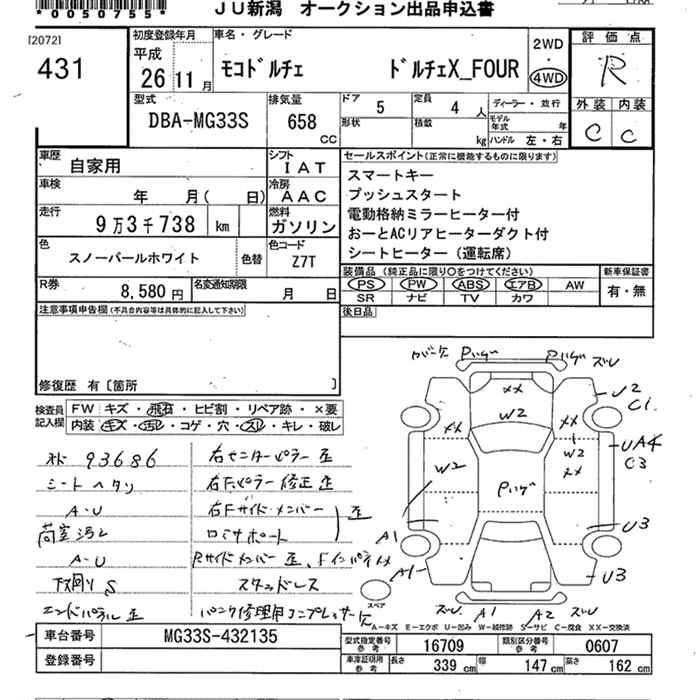 5005075 5
JU新潟 オークション出品申込書
[2072]
431
初度登録年月
平成
26 11月
車名・グレード
モコドルチェ ドルチェX_FOUR
2WD
・
4WD
評価点
R
型式
DBA-MG33S
排気量
658 CC
ドア 5
定員 4 人
形状
積載 kg
ディーラー・並行
モデル年式 年
ハンドル 左・右
外装 内装
C C
車歴 自家用
シフト IAT
車検 年 月( 日)
冷房 AAC
走行 9万3千738 km
燃料 ガソリン
色 スノーパールホワイト
色替
色コード Z7T
R券 8,580円
名変通知期限 月 日
セールスポイント(正常に機能するものに限ります)
スマートキー
プッシュスタート
電動格納ミラーヒーター付
おーとACリアヒーターダクト付
シートヒーター(運転席)
装備品(純正品に限り○をつけてください)
PS PW ABS エアB AW
SR ナビ TV カワ
新車保証書
有・無
後日品
注意事項申告欄(不具合内容等は具体的に記入して下さい)
修復歴 有〔箇所 〕
検査員記入欄
FW キズ・飛石・ヒビ割・リペア跡・×要
内装 キズ・汚レ・コゲ・穴・スレ・キレ・破レ
93686
シートヘタリ
A-U
荷室汚レ
A-U
下廻りS
エンドパネル歪
右センターピラー歪
右Fピラー修正歪
右Fサイドメンバー 歪
ロアサポート
Rサイドメンバー歪、Fインパネ
スタッドレス
パンク修理用コンプレッサーケ
Pハゲ Pハゲ ズレ
U2
C1
XX
W2
XX XX
W2
W2
XX
UA4
C3
Pハゲ
U3
A1
A1
U3
スペア
ズレ A1 A2 ズレ
A-キズ E-エクボ U-凹み W-補修跡 S-サビ C-腐食 XX-交換済
車台番号 MG33S-432135
登録番号
型式指定番号 参考 16709
類別区分番号 参考 0607
車庫証明用 参考
長さ 339 cm 幅 147 cm 高さ 162 cm